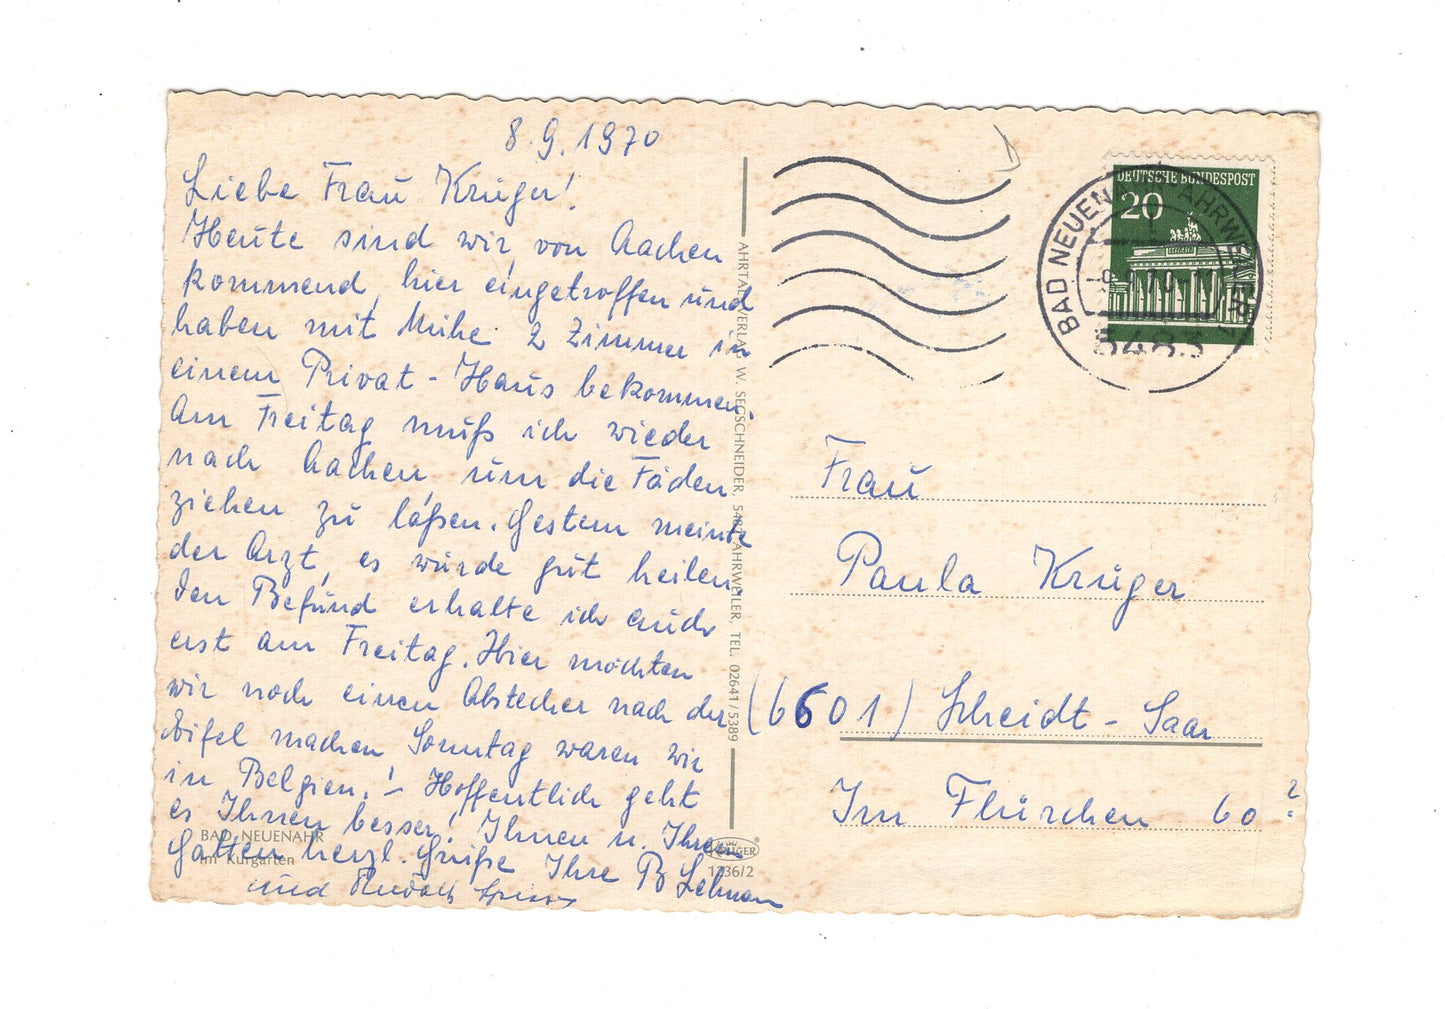 8.9.1970
Liebe Frau Krüger!
Heute sind wir, von Aachen
kommend, hier eingetroffen und
haben mit Mühe 2 Zimmer in
einem Privat-Haus bekommen.
Am Freitag muß ich wieder
nach Aachen um die Fäden
ziehen zu laßen. Gestern meinte
der Arzt, es würde gut heilen.
Den Befund erhalte ich auch
erst am Freitag. Hier möchten
wir noch einen Abstecher nach der
Eifel machen Sonntag waren wir
in Belgien! – Hoffentlich geht
es Ihnen besser! Ihnen u. Ihrem
Gatten herzl. Grüße Ihre B Lehman
und Rudolf
BAD NEUENAHR
Im Kurgarten
AHRTAL-VERLAG W. SEGSCHNEIDER, 5483 AHRWEILER, TEL. 02641/5389
KRÜGER
1236/2
DEUTSCHE BUNDESPOST
20
BAD NEUENAHR-AHRWEILER 1
-9.9.70-11
5483
Frau
Paula Krüger
(6601) Scheidt-Saar
Im Flürchen 60?